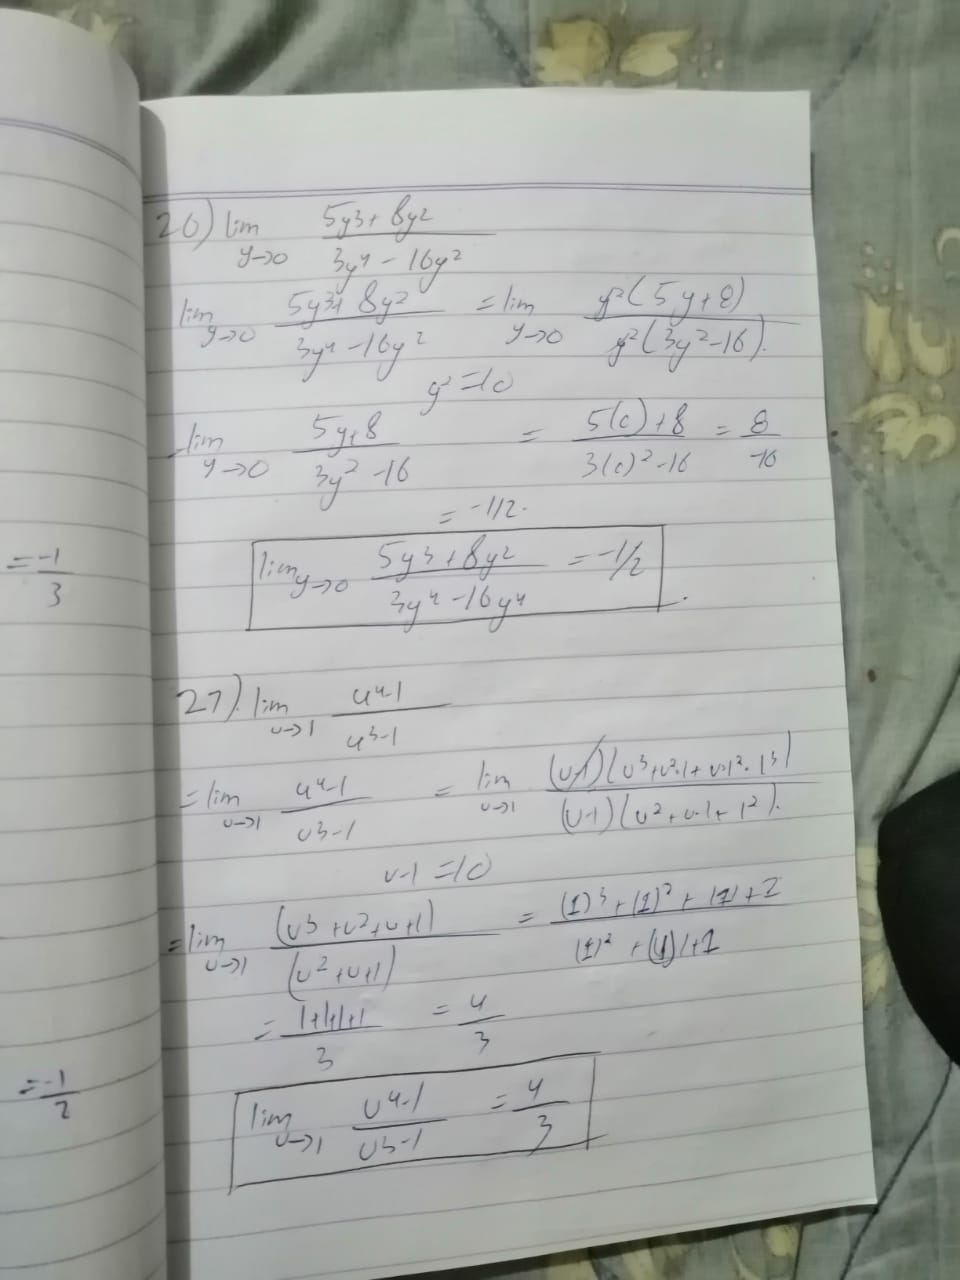 26) lim y→0 5y3+8y2 / 3y4-16y2
lim y→0 5y3+8y2 / 3y4-16y2 = lim y→0 y2(5y+8) / y2(3y2-16).
y2 ≠ 0
lim y→0 5y+8 / 3y2-16 = 5(0)+8 / 3(0)2-16 = 8 / -16
= -1/2.
lim y→0 5y3+8y2 / 3y4-16y4 = -1/2
= -1/3
27). lim u→1 u4-1 / u3-1
= lim u→1 u4-1 / u3-1 = lim u→1 (u-1)(u3+u2·1+u·12·13) / (u-1)(u2+u·1+12).
u-1 ≠ 0
= lim u→1 (u3+u2+u+1) / (u2+u+1) = (1)3+(1)2+(1)+1 / (1)2+(1)+1
= 1+1+1+1 / 3 = 4 / 3
= -1/2
lim u→1 u4-1 / u3-1 = 4 / 3